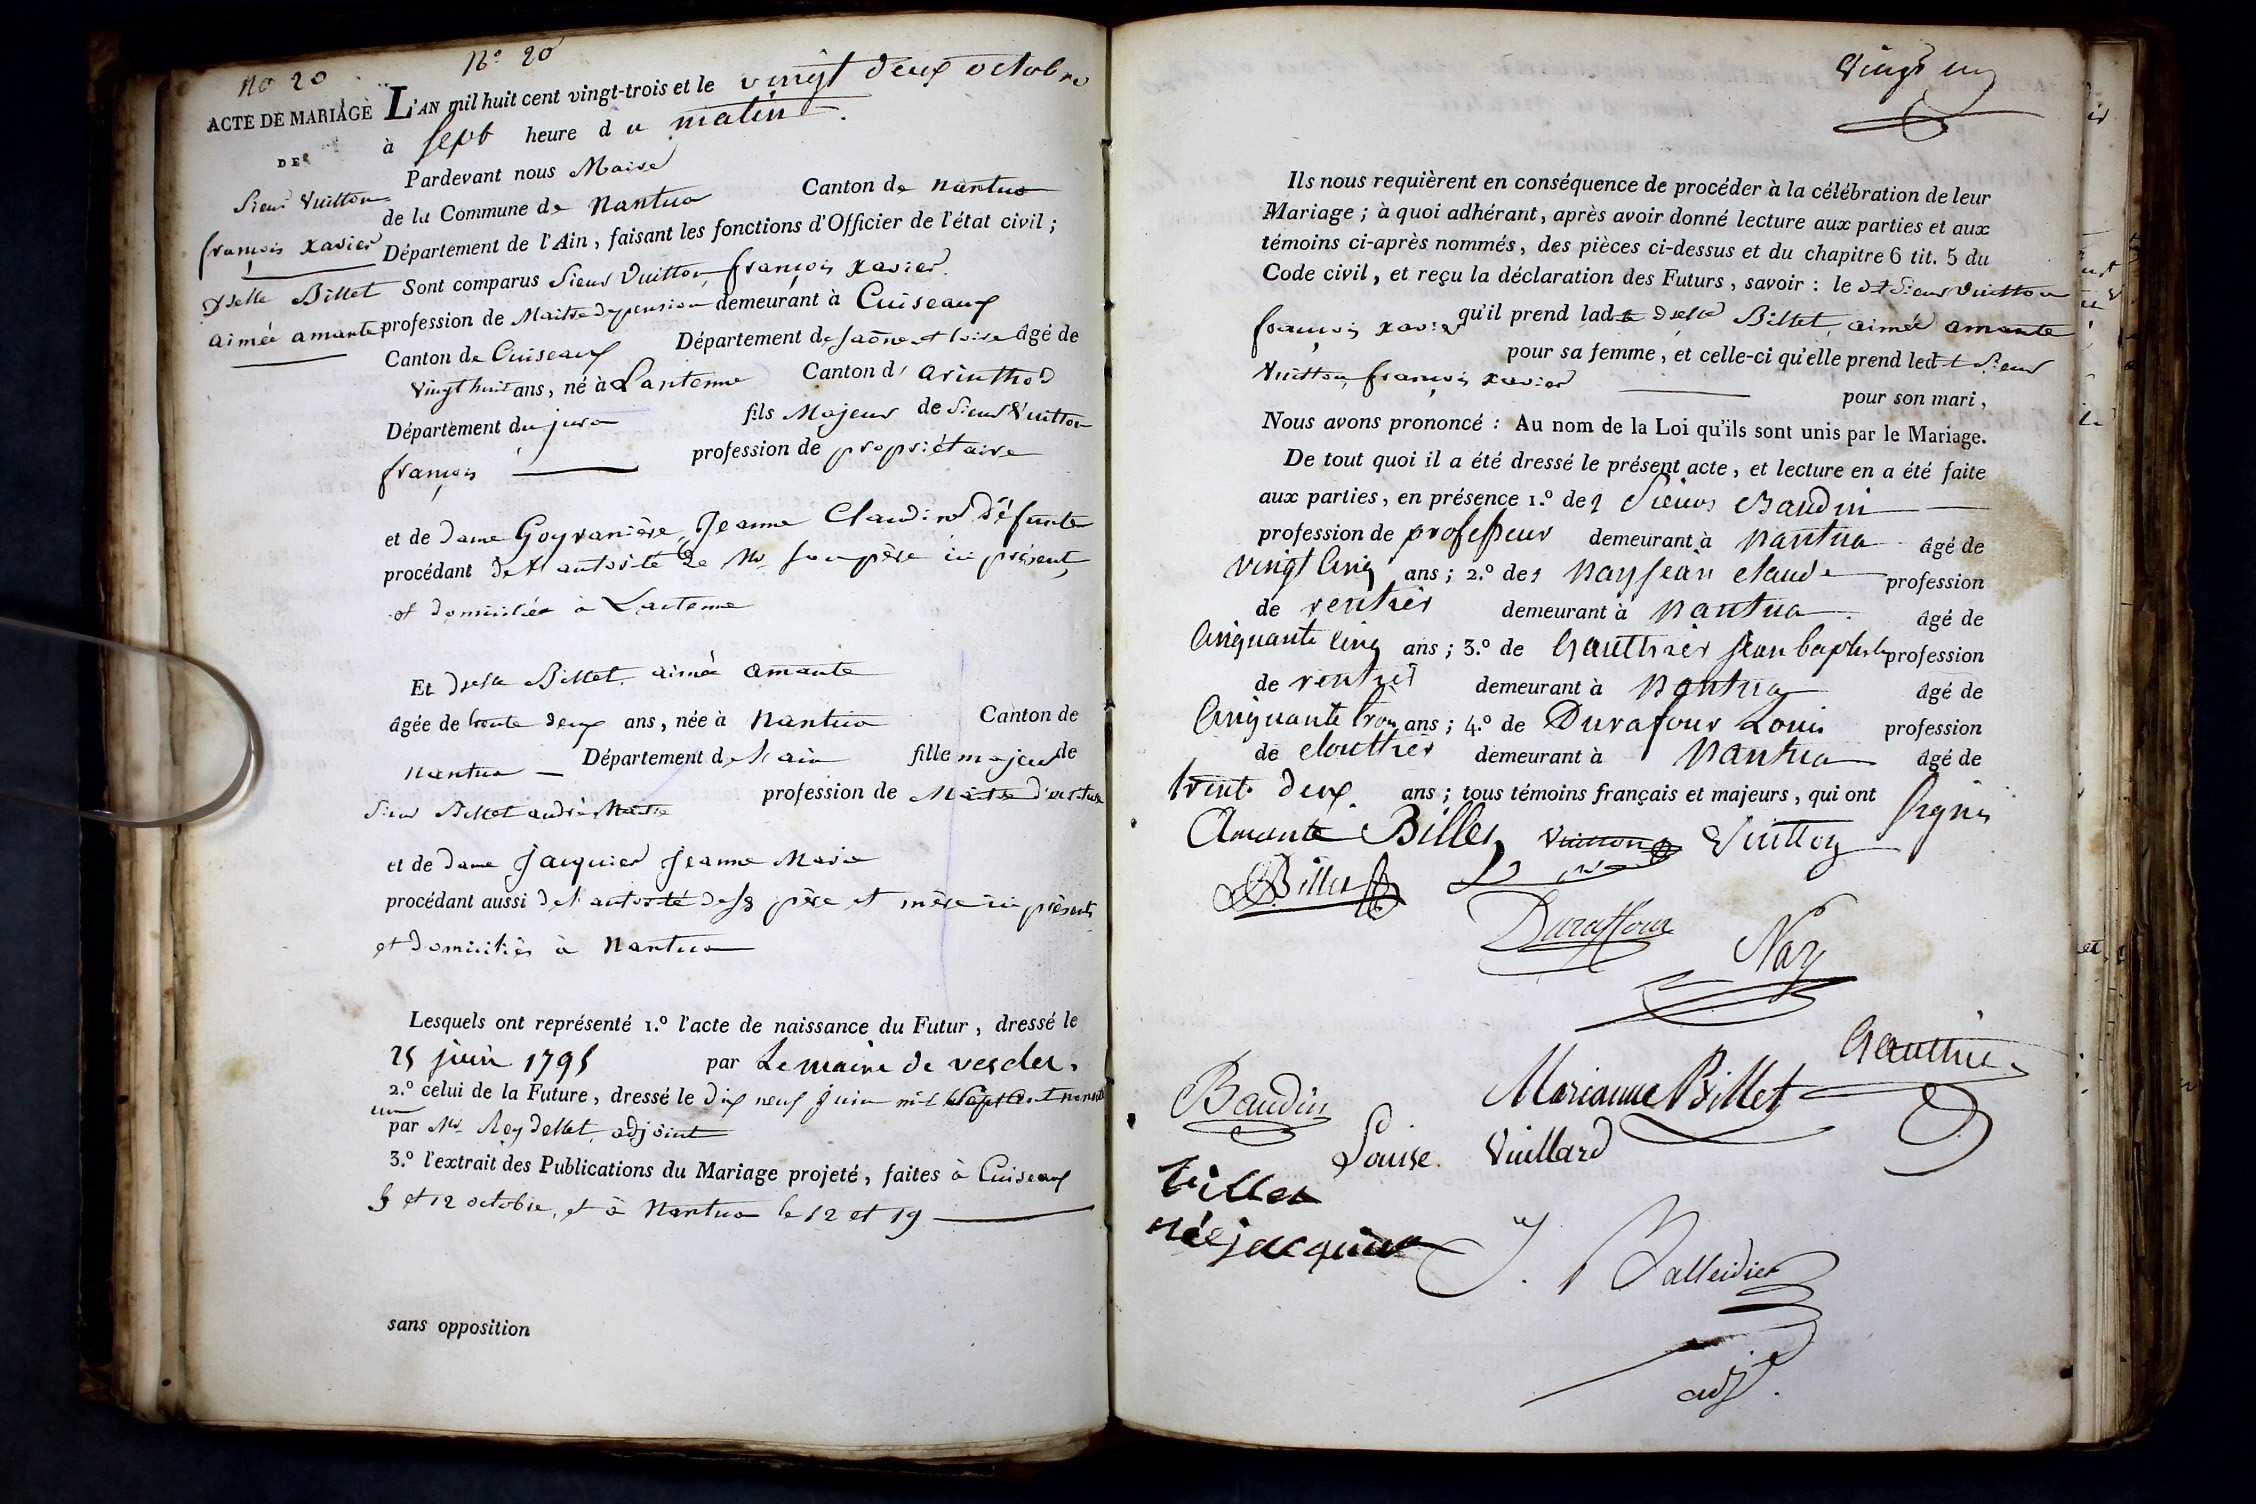 no 20
N.° 20
ACTE DE MARIAGE
DE
Sieur Vuitton
françois xavier
& dselle Billet
aimée amante
L'AN mil huit cent vingt-trois et le vingt deux octobre
à sept heure du matin
Pardevant nous Maire
de la Commune de Nantua Canton de Nantua
Département de l'Ain, faisant les fonctions d'Officier de l'état civil ;
Sont comparus Sieur Vuitton françois xavier
profession de Maitre de pension demeurant à Cuiseaux
Canton de Cuiseaux Département de saône et loire âgé de
vingt huit ans, né à Lantenne Canton d'arinthod
Département du jura fils Majeur de Sieur Vuitton
françois profession de propriétaire
et de dame Goyvanière, Jeanne Claudine défunte
procédant de l'autorité de Mr son père ici présent,
et domicilié à Lantenne
Et dselle Billet aimée amante
âgée de trente deux ans, née à Nantua Canton de
Nantua Département de l'ain fille majeure de
Sieur Billet andré profession de
et de dame Jacquier Jeanne Marie
procédant aussi de l'autorité de ses père et mère ici présents
et domiciliés à Nantua
Lesquels ont représenté 1.° l'acte de naissance du Futur, dressé le
25 juin 1795 par Le maire de vescles,
2.° celui de la Future, dressé le dix neuf juin mil sept cent nonante
un
par Mr Reydellet, adjoint
3.° l'extrait des Publications du Mariage projeté, faites à Cuiseaux
5 et 12 octobre, et à Nantua le 12 et 19
sans opposition
Vingt un
Ils nous requièrent en conséquence de procéder à la célébration de leur
Mariage ; à quoi adhérant, après avoir donné lecture aux parties et aux
témoins ci-après nommés, des pièces ci-dessus et du chapitre 6 tit. 5 du
Code civil, et reçu la déclaration des Futurs, savoir : le dt Sieur Vuitton
françois xavier qu'il prend ladte dselle Billet, aimée amante
pour sa femme, et celle-ci qu'elle prend ledt Sieur
Vuitton françois xavier pour son mari,
Nous avons prononcé : Au nom de la Loi qu'ils sont unis par le Mariage.
De tout quoi il a été dressé le présent acte, et lecture en a été faite
aux parties, en présence 1.° des Sieurs Baudin
profession de professeur demeurant à Nantua âgé de
vingt cinq ans ; 2.° des Nay jean claude profession
de rentier demeurant à Nantua âgé de
Cinquante cinq ans ; 3.° de Gauthier jean baptiste profession
de rentier demeurant à Nantua âgé de
Cinquante trois ans ; 4.° de Durafour Louis profession
de cloutier demeurant à Nantua âgé de
trente deux ans ; tous témoins français et majeurs, qui ont signé
Amante Billet Vuitton Vuitton
Billet
Duraffour
Nay
Gauthier
Baudin
Marianne Billet
Louise Vuillard
billet
née jacquier
J. Balleidier
adjt.